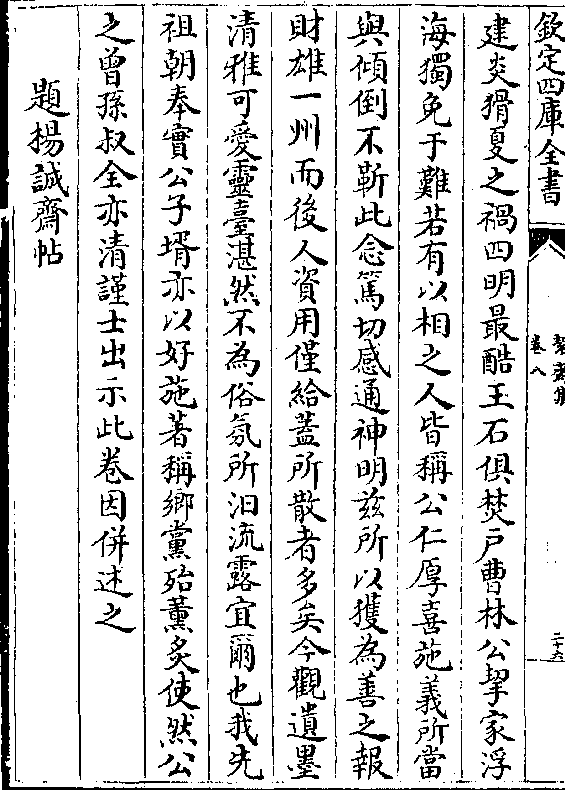 欽定四庫全書
絜齋集
卷八
二十六
建炎猾夏之禍四明最酷玉石俱焚戶曹林公挈家浮
海獨免于難若有以相之人皆稱公仁厚喜施義所當
與傾倒不靳此念篤切感通神明兹所以獲為善之報
財雄一州而後人資用僅給蓋所散者多矣今觀遺墨
清雅可愛靈臺湛然不為俗氛所汨流露宜爾也我先
祖朝奉實公子壻亦以好施著稱鄉黨殆薰炙使然公
之曾孫叔全亦清謹士出示此卷因併述之
題揚誠齋帖